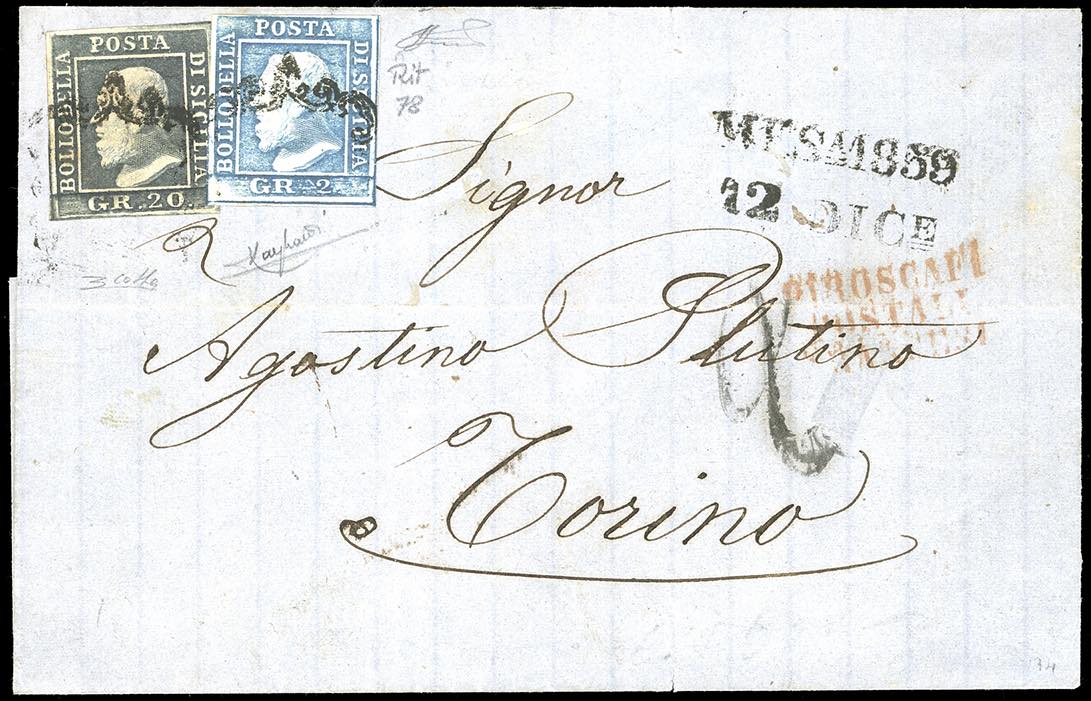 POSTA
BOLLO DELLA
DI SICILIA
GR. 20.
POSTA
BOLLO DELLA
DI SICILIA
GR. 2
Rit
78
3 cotta
MESM1859
12 DICE
PIROSCAFI
POSTALI
Signor
Agostino Plutino
Torino
34